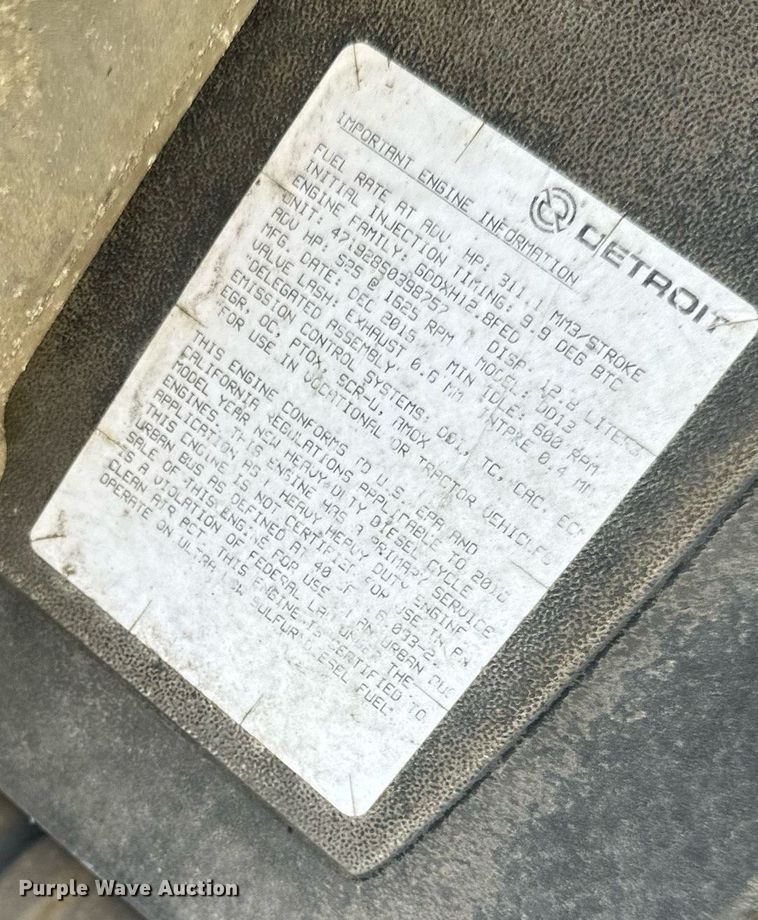 DETROIT
IMPORTANT ENGINE INFORMATION
FUEL RATE AT ADV. HP: 311.1 MM3/STROKE
INITIAL INJECTION TIMING: 9.9 DEG BTC
ENGINE FAMILY: GDDXH12.8FED DISP: 12.8 LITERS
UNIT: 471928S0398757 MODEL: DD13
ADV HP: 525 @ 1625 RPM MIN IDLE: 600 RPM
MFG. DATE: DEC 2015
VALVE LASH: EXHAUST 0.6 MM INTAKE 0.4 MM
DELEGATED ASSEMBLY.
EMISSION CONTROL SYSTEMS: DDI, TC, CAC, ECM
EGR, OC, PTOX, SCR-U, AMOX
FOR USE IN VOCATIONAL OR TRACTOR VEHICLES
THIS ENGINE CONFORMS TO U.S. EPA AND
CALIFORNIA REGULATIONS APPLICABLE TO 2016
MODEL YEAR NEW HEAVY DUTY DIESEL CYCLE
ENGINES. THIS ENGINE HAS A PRIMARY SERVICE
APPLICATION AS A HEAVY HEAVY DUTY ENGINE
THIS ENGINE IS NOT CERTIFIED FOR USE IN AN
URBAN BUS AS DEFINED AT 40 093-2.
SALE OF THIS ENGINE FOR USE IN AN URBAN BUS
IS A VIOLATION OF FEDERAL LAW UNDER THE
CLEAN AIR ACT. THIS ENGINE IS CERTIFIED TO
OPERATE ON ULTRA LOW SULFUR DIESEL FUEL.
Purple Wave Auction